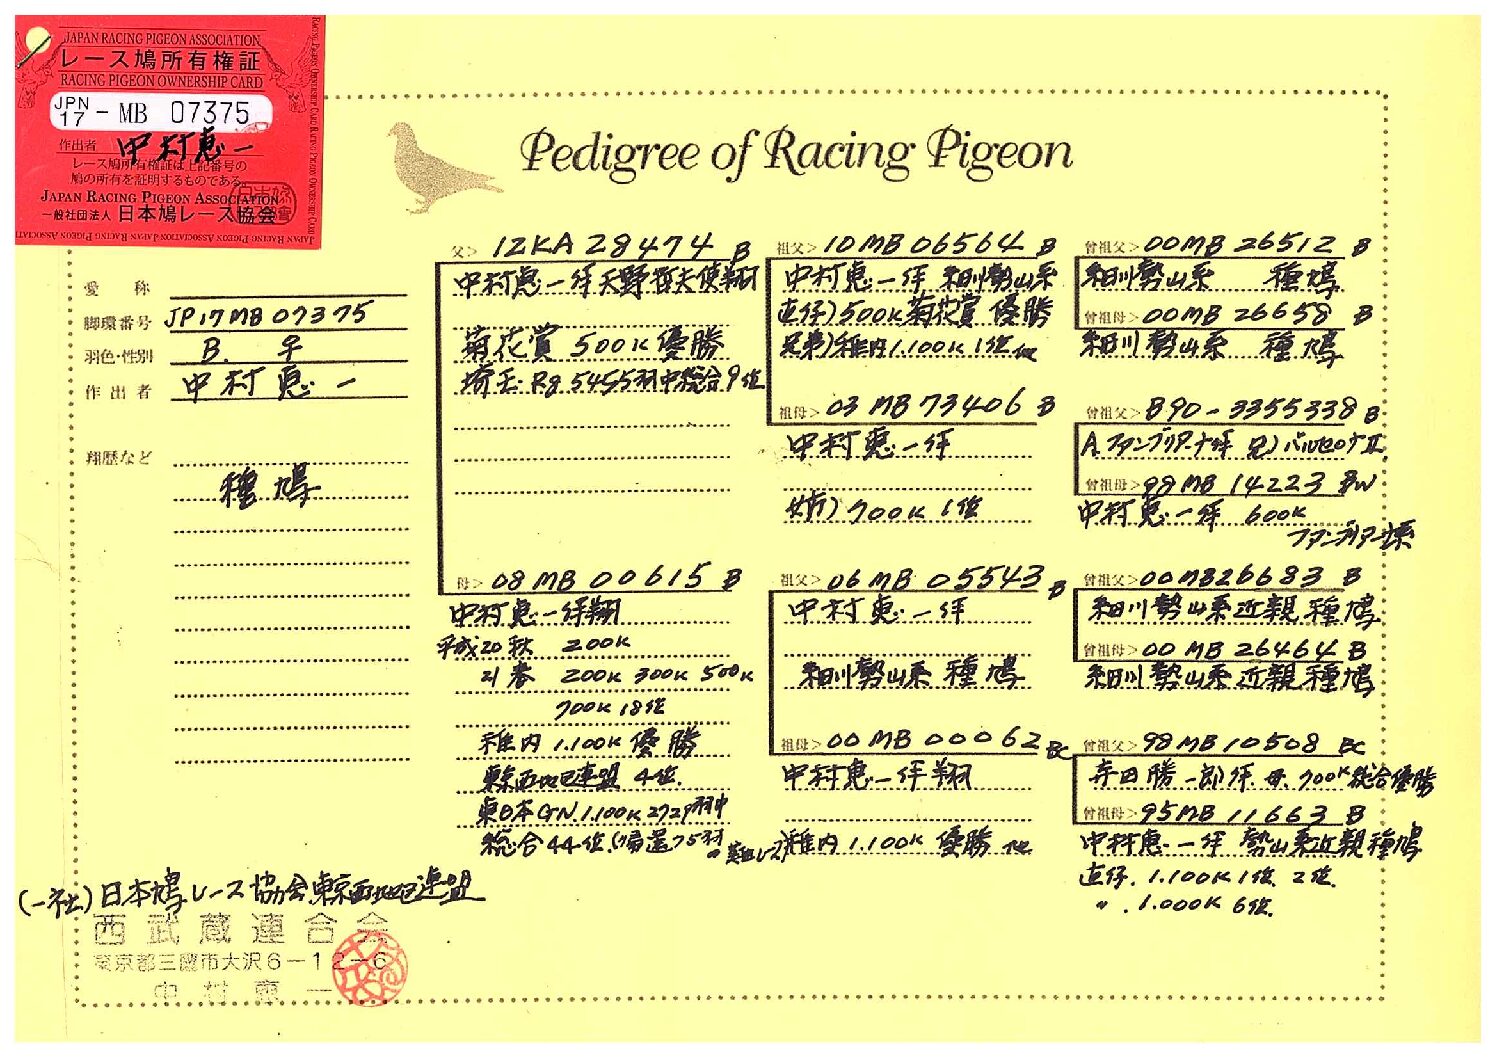 JAPAN RACING PIGEON ASSOCIATION
レース鳩所有権証
RACING PIGEON OWNERSHIP CARD
JPN 17 - MB 07375
作出者 中村恵一
レース鳩所有権証は上記番号の
鳩の所有を証明するものである
JAPAN RACING PIGEON ASSOCIATION
一般社団法人 日本鳩レース協会
Pedigree of Racing Pigeon
愛称
脚環番号 JP17MB07375
羽色・性別 B. ♀
作出者 中村恵一
翔歴など
種鳩
父> 12KA 28474 B
中村恵一作天野哲夫使翔
菊花賞 500K 優勝
埼玉Rg 5455羽中総合9位
母> 08MB 00615 B
中村恵一作翔
平成20秋 200K
21春 200K 300K 500K
700K 18位
稚内 1.100K 優勝
東京西地区連盟 4位.
東日本GN 1.100K 2729羽中
総合44位.(帰還75羽
祖父> 10MB 06564 B
中村恵一作 細川勢山系
直仔)500K菊花賞 優勝
兄弟)稚内1.100K 1位他
祖母> 03 MB 73406 B
中村恵一作
姉)700K 1位
祖父> 06 MB 05543 B
中村恵一作
細川勢山系 種鳩
祖母> 00 MB 00062 BC
中村恵一作翔
稚内1.100K 優勝 他
曾祖父> 00MB 26512 B
細川勢山系 種鳩
曾祖母> 00MB 26658 B
細川勢山系 種鳩
曾祖父> B90-3355338 B
A.ファンブリアーナ作 兄)バルセロナⅡ
曾祖母> 98MB 14223 BW
中村恵一作 600K
ファンブリアーナ系
曾祖父> 00MB26683 B
細川勢山系近親種鳩
曾祖母> 00 MB 26464 B
細川勢山系近親種鳩
曾祖父> 98MB 10508 BC
寺田勝一郎作.母.700K総合優勝
曾祖母> 95MB 11663 B
中村恵一作 勢山系近親種鳩
直仔.1.100K 1位 2位.
〃.1.000K 6位.
(一社)日本鳩レース協会東京西地区連盟
西武蔵連合会
東京都三鷹市大沢6-12-6
中村恵一